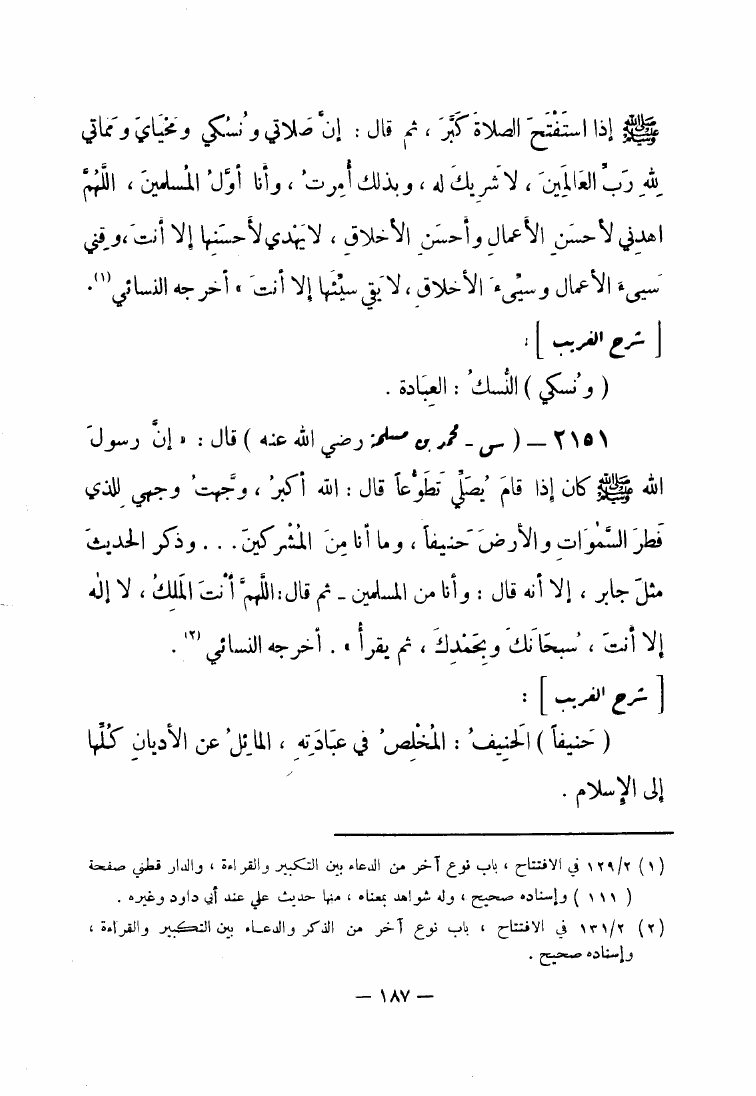 ﷺ إذا استَفْتَحَ الصلاةَ كَبَّرَ ، ثم قال : إنَّ صَلاتي ونُسُكي ومَحْيَايَ ومَماتي
لِلهِ رَبِّ العَالَمِينَ ، لا شَرِيكَ له ، وبذلك أُمِرتُ ، وأنا أوَّلُ المُسلمينَ ، اللَّهُمَّ
اهدِني لأَحسَنِ الأعمالِ وأحسَنِ الأخلاقِ ، لا يَهْدي لأحسَنِها إلا أنتَ ، وقِني
سَيىءَ الأعمال وسَيِّىءَ الأخلاقِ ، لا يَقي سَيِّئَها إلا أنتَ » أخرجه النسائي (١).
[ شرح الغريب ] :
( ونُسكي ) النُّسكُ : العِبَادة .
٢١٥١ – ( س - محمد بن مسلمة رضي الله عنه ) قال : « إنَّ رسولَ
الله ﷺ كان إذا قامَ يُصَلِّي تَطَوُّعاً قال : الله أكبرُ ، وَجَّهتُ وجهي لِلذي
فَطرَ السَّمُوَاتِ والأرضَ حَنيفاً ، وما أنا مِنَ المُشْركينَ . . . وذكر الحديثَ
مثلَ جابر ، إلا أنه قال : وأنا من المسلمين - ثم قال : اللَّهمَّ أنتَ المَلِكُ ، لا إلٰه
إلا أنتَ ، سُبحَانَكَ وبِحَمْدِكَ ، ثم يقرأُ » . أخرجه النسائي (٢) .
[ شرح الغريب ] :
( حَنيفاً ) الحَنِيفُ : المُخْلِصُ في عبَادَتِهِ ، المائِلُ عن الأديانِ كُلِّها
إلى الإسلام .
(١) ١٢٩/٢ في الافتتاح ، باب نوع آخر من الدعاء بين التكبير والقراءة ، والدار قطني صفحة
( ١١١ ) وإسناده صحيح ، وله شواهد بمعناه ، منها حديث علي عند أبي داود وغيره .
(٢) ١٣١/٢ في الافتتاح ، باب نوع آخر من الذكر والدعاء بين التكبير والقراءة ،
وإسناده صحيح .
– ١٨٧ –